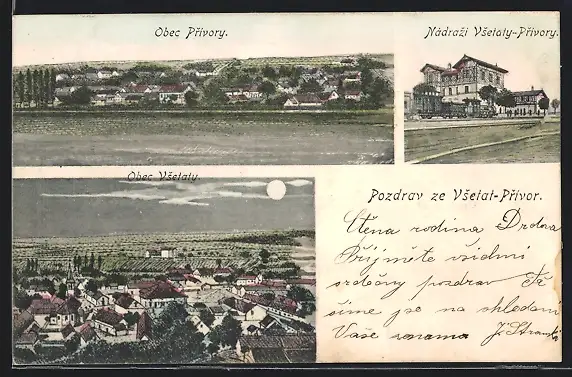 Obec Přívory.
Nádraží Všetaty-Přívory.
Obec Všetaty.
Pozdrav ze Všetat-Přívor.
Ctěna rodina Drdova
Přijměte všichni
srdečny pozdrav Tě
šíme se na shledaní
Vaše mama